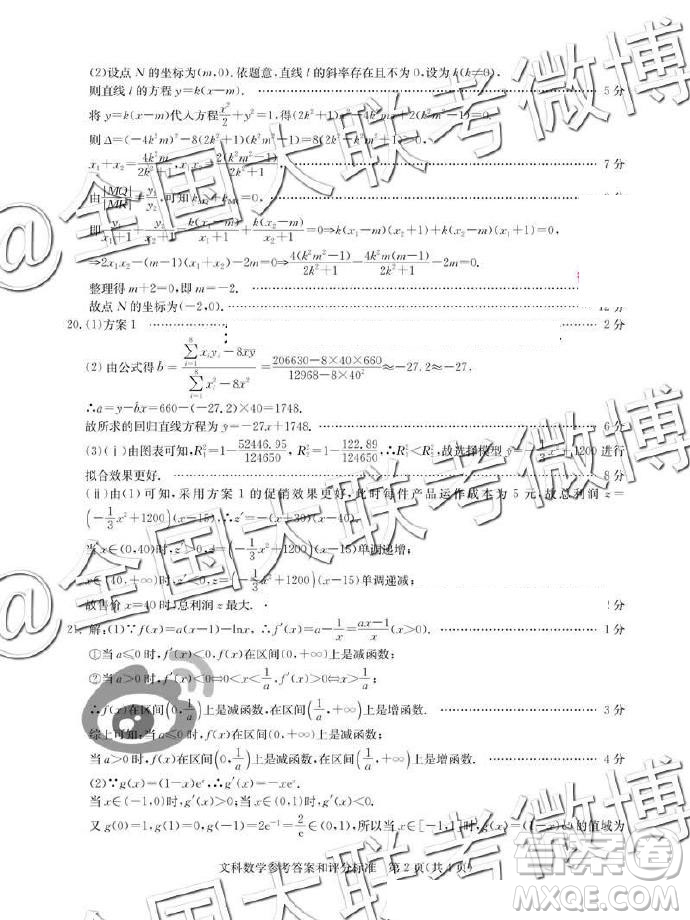 (2)设点 N 的坐标为(m,0).依题意,直线 l 的斜率存在且不为 0,设为 k(k≠0),
则直线 l 的方程 y=k(x-m). 5 分
将 y=k(x-m)代入方程 x²/2+y²=1,得(2k²+1)x²-4k²mx+2(k²m²-1)=0.
则 Δ=(-4k²m)²-8(2k²+1)(k²m²-1)=8(2k²-k²m²+1)>0,
x₁+x₂=4k²m/(2k²+1), x₁x₂=2(k²m²-1)/(2k²+1). 7 分
由|MQ|/|MR| y₁/y₂,可知 k =0,
即 y₁/(x₁+1)+y₂/(x₂+1)=k(x₁-m)/(x₁+1)+k(x₂-m)/(x₂+1)=0⇒k(x₁-m)(x₂+1)+k(x₂-m)(x₁+1)=0,
⇒2x₁x₂-(m-1)(x₁+x₂)-2m=0⇒4(k²m²-1)/(2k²+1)-4k²m(m-1)/(2k²+1)-2m=0.
整理得 m+2=0,即 m=-2.
故点 N 的坐标为(-2,0). 12 分
20.(1)方案 1 2 分
(2) 由公式得 b̂=(∑ᵢ₌₁⁸xᵢyᵢ-8x̄ȳ)/(∑ᵢ₌₁⁸xᵢ²-8x̄²)=(206630-8×40×660)/(12968-8×40²)≈-27.2≈-27.
∴a=y-bx=660-(-27.2)×40=1748.
故所求的回归直线方程为 y=-27x+1748. 6 分
(3)(ⅰ)由图表可知,R₁²=1-52446.95/124650, R₂²=1-122.89/124650,∴R₁²<R₂²,故选择模型 ŷ=-1/3x²+1200 进行
拟合效果更好. 8 分
(ⅱ)由(1)可知,采用方案 1 的促销效果更好,此时每件产品运作成本为 5 元,故总利润 z=
(-1/3x²+1200)(x-15),∴z′=-(x+30)(x-40),
当 x∈(0,40)时,z′>0,z=(-1/3x²+1200)(x-15)单调递增;
x∈(40,+∞)时,z′<0,z=(-1/3x²+1200)(x-15)单调递减;
故售价 x=40 时,总利润 z 最大. 分
21.解:(1)∵f(x)=a(x-1)-lnx, ∴f′(x)=a-1/x=(ax-1)/x(x>0). 1 分
①当 a≤0 时,f′(x)<0,f(x)在区间(0,+∞)上是减函数;
②当 a>0 时,f′(x)<0⇔0<x<1/a,f′(x)>0⇔x>1/a,
∴f(x)在区间(0,1/a)上是减函数,在区间(1/a,+∞)上是增函数. 3 分
综上可知:当 a≤0 时,f(x)在区间(0,+∞)上是减函数;
当 a>0 时,f(x)在区间(0,1/a)上是减函数,在区间(1/a,+∞)上是增函数. 4 分
(2)∵g(x)=(1-x)eˣ,∴g′(x)=-xeˣ.
当 x∈(-1,0)时,g′(x)>0;当 x∈(0,1)时,g′(x)<0.
又 g(0)=1,g(1)=0,g(-1)=2e⁻¹=2/e∈(0,1),所以当 x∈[-1,1]时,g(x)=(1-x)eˣ的值域为
文科数学参考答案和评分标准 第 2 页(共 4 页)
@全国大联考微博
@全国大联考微博